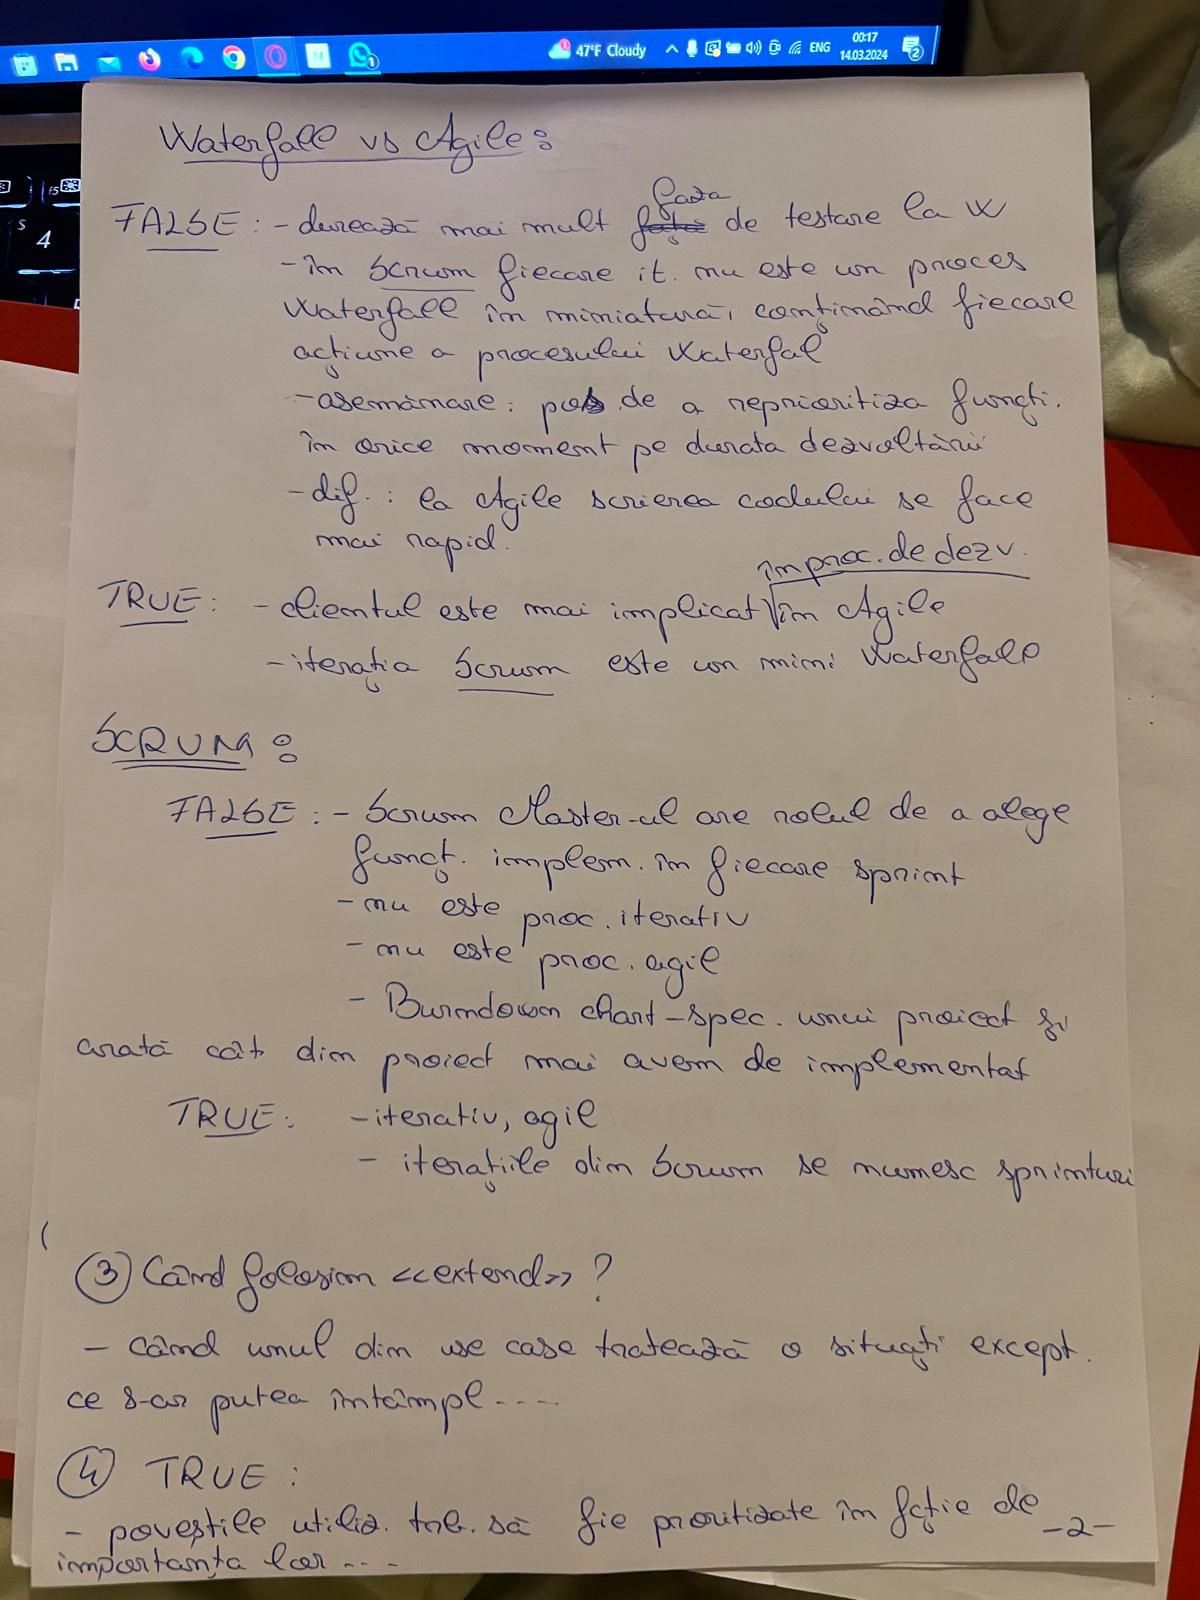 47°F Cloudy
ENG
00:17
14.03.2024
2
1
F5
S
4
Waterfall vs Agile:
faza
FALSE: - durează mai mult de testare la W
- în Scrum fiecare it. nu este un proces
Waterfall în miniatură, conținând fiecare
acțiune a procesului Waterfal
- asemănare: pos. de a reprioritiza funcți.
în orice moment pe durata dezvoltării
- dif.: la Agile scrierea codului se face
mai rapid.
în proc. de dezv.
TRUE: - clientul este mai implicat în Agile
- iterația Scrum este un mini Waterfall
SCRUM:
FALSE: - Scrum Master-ul are rolul de a alege
funcț. implem. în fiecare sprint
- nu este proc. iterativ
- nu este proc. agil
- Burndown chart - spec. unui proiect și
arată cât din proiect mai avem de implementat
TRUE: - iterativ, agil
- iterațiile din Scrum se numesc sprinturi
③ Când folosim <<extend>>?
- când unul din use case tratează o situați except.
ce s-ar putea întâmpl....
④ TRUE:
- poveștile utiliz. trb. să fie prioritizate în fcție de
importanța lor ...
-2-